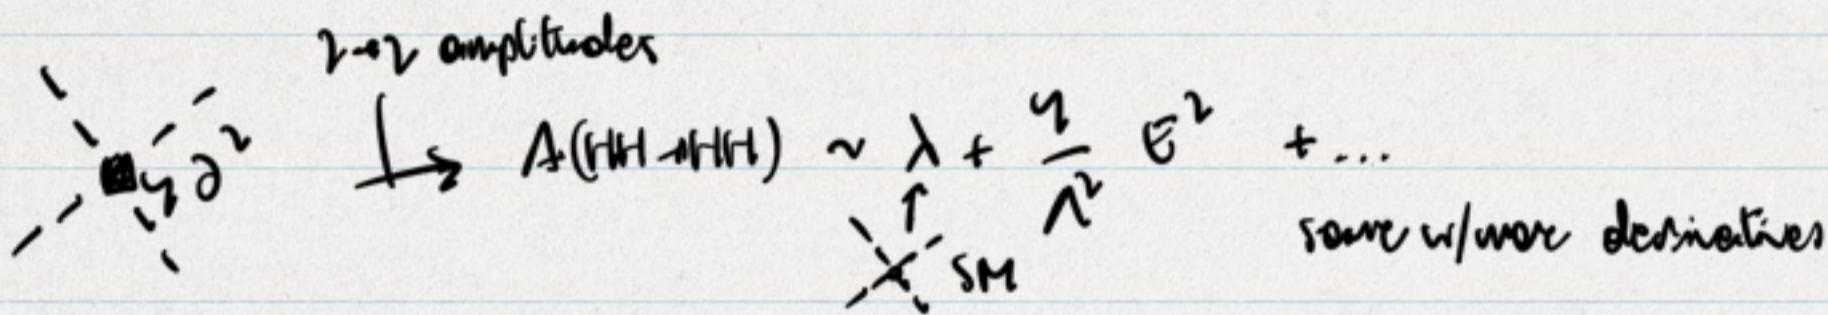 2→2 amplitudes
η∂² ↳ A(HH→HH) ~ λ + η/Λ² E² + ...
SM
same w/more derivatives